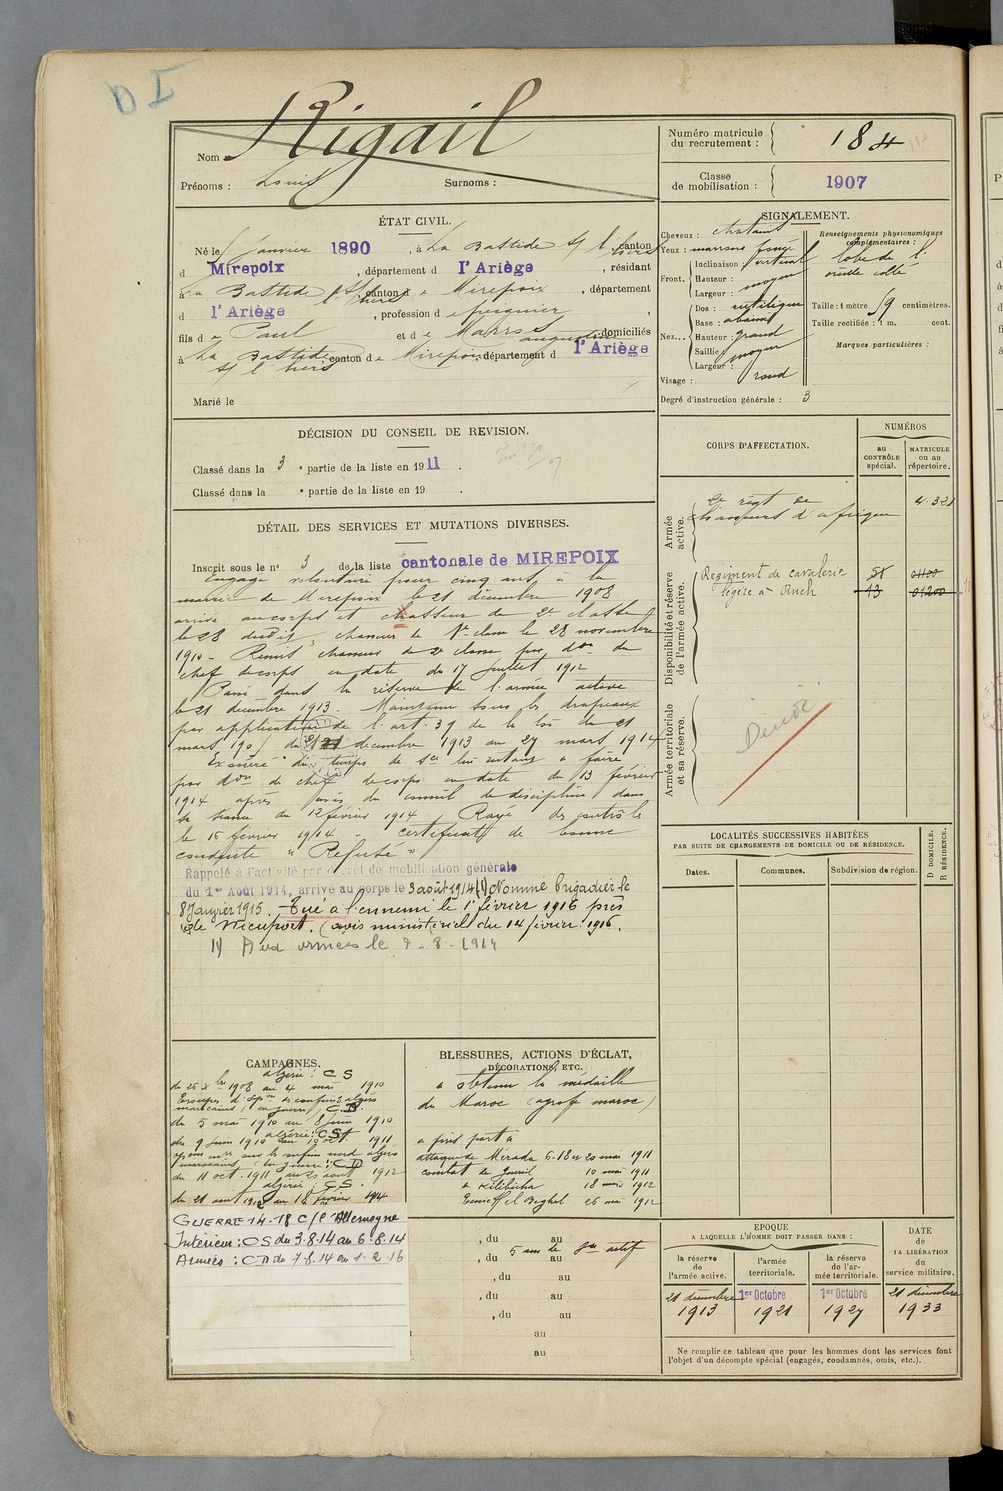 D I
Nom : Rigail
Prénoms : Louis Surnoms :
Numéro matricule du recrutement : 184
Classe de mobilisation : 1907
ÉTAT CIVIL.
Né le janvier 1890, à La Bastide s/ l'hers canton
d Mirepoix, département d l'Ariège, résidant
à La Bastide s/ l'hers canton d e Mirepoix, département
d l'Ariège, profession d e peignier,
fils d e Paul et d e Marros augustine domiciliés
à La Bastide s/ l'hers canton d e Mirepoix, département d l'Ariège
Marié le
SIGNALEMENT.
Cheveux : chatains
Yeux : marrons foncé
Front. Inclinaison : vertical
Hauteur : moyen
Largeur :
Nez... Dos : rectiligne
Base : abaissé
Hauteur : grand
Saillie : moyen
Largeur :
Visage : rond
Renseignements physionomiques complémentaires :
lobe de l'
oreille collé
Taille : 1 mètre 59 centimètres.
Taille rectifiée : 1 m. cent.
Marques particulières :
Degré d'instruction générale : 3
DÉCISION DU CONSEIL DE REVISION.
Classé dans la 3 e partie de la liste en 1911.
Classé dans la e partie de la liste en 19 .
DÉTAIL DES SERVICES ET MUTATIONS DIVERSES.
Inscrit sous le n° 3 de la liste cantonale de MIREPOIX
Engagé volontaire pour cinq ans à la
mairie de Mirepoix le 21 décembre 1908
arrivé au corps et chasseur de 2e classe
le 28 dudit, chasseur de 1re classe le 28 novembre
1910 - Remis chasseur de 2e classe par don du
chef de corps en date du 17 juillet 1912
Passé dans la réserve de l'armée active
le 21 décembre 1913. Maintenu sous les drapeaux
par application de l'art. 39 de la loi du 21
mars 1905 du 21 décembre 1913 au 27 mars 1914
Exonéré du temps de sce lui restant à faire
par don de chef de corps en date du 13 février
1914 après avis du conseil de discipline dans
sa séance du 12 février 1914 Rayé des contrôles
le 15 février 1914 - certificat de bonne
conduite " Refusé "
Rappelé à l'activité par décret de mobilisation générale
du 1er Août 1914, arrivé au corps le 3 août 1914 (1) Nommé brigadier le
8 Janvier 1915. Tué à l'ennemi le 1er février 1916 près
de Nieuport. (avis ministériel du 14 février 1916.
1) Aux armées le 7-8-1914
CORPS D'AFFECTATION.
NUMÉROS
au CONTRÔLE spécial.
MATRICULE ou au répertoire.
Armée active.
2e regt de
chasseurs d'afrique 4.321
Disponibilité et réserve de l'armée active.
Régiment de cavalerie 51
légère à Auch 13 01200
Armée territoriale et sa réserve.
Décédé
LOCALITÉS SUCCESSIVES HABITÉES
PAR SUITE DE CHANGEMENTS DE DOMICILE OU DE RÉSIDENCE.
Dates. Communes. Subdivision de région. D DOMICILE. R RÉSIDENCE.
CAMPAGNES.
algérie : CS
du 26 Xbre 1908 au 4 mai 1910
marocains (en guerre) C.D.
du 5 mai 1910 au 8 juin 1910
algérie : CS
du 9 juin 1910 au 10 oct. 1911
marocains (en guerre) : CD
du 11 oct. 1911 au 21 août 1912
algérie : CS.
du 21 août 1912 au 18 février 1914
GUERRE 14-18 C/ l'Allemagne
Intérieur : CS du 3.8.14 au 6-8-14
Armées : CD du 7-8.14 au 1.2.16
BLESSURES, ACTIONS D'ÉCLAT,
DÉCORATIONS, ETC.
a obtenu la médaille
du Maroc (agrafe maroc)
a pris part à
attaque de Mérada 6-18 et 20 mai 1911
combat de 10 mai 1911
18 mars 1912
26 mai 1912
, du au
5 ans de sce actif
, du au
, du au
, du au
, du au
au
au
EPOQUE
A LAQUELLE L'HOMME DOIT PASSER DANS :
la réserve de l'armée active.
l'armée territoriale.
la réserve de l'armée territoriale.
DATE de LA LIBÉRATION du service militaire.
21 décembre 1913
1er Octobre 1921
1er Octobre 1927
21 décembre 1933
Ne remplir ce tableau que pour les hommes dont les services font
l'objet d'un décompte spécial (engagés, condamnés, omis, etc.).